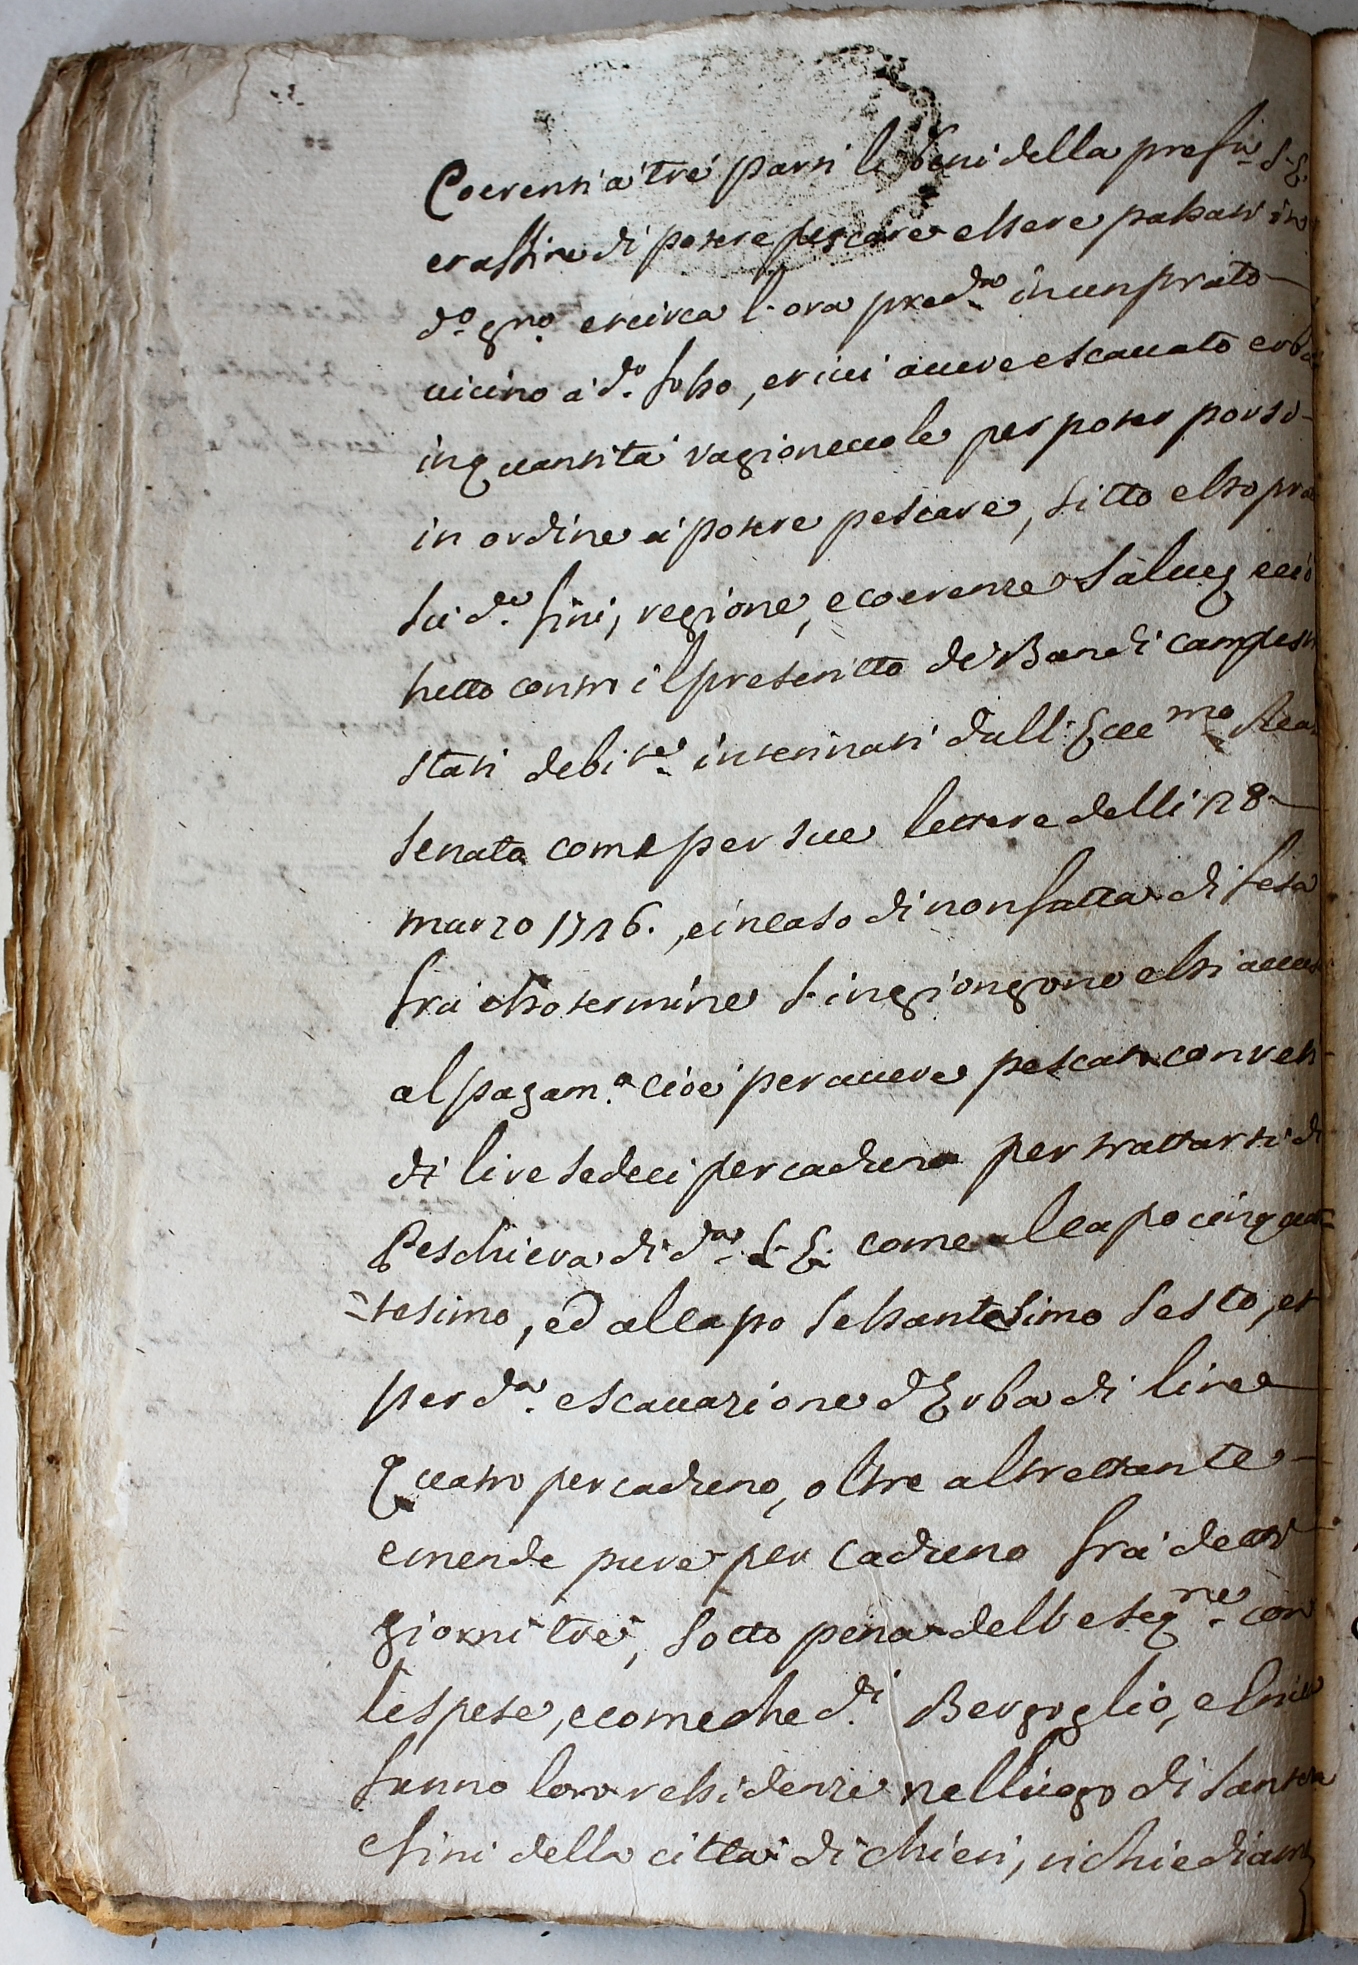 Coerenti a tre parti li beni della prefa S. E.
et affine di potere pescare essere passati in
do. gno. et circa l'ora preda. in un prato
vicino à do. fosso, et ivi avere escavato erba
in quantità ragionevole per poter porsi
in ordine à potere pescare, sitto esso pra
su de. fini, regione, e coerenze
hetto contro il prescritto de Bandi campes
stati debite. interinati dall' Ecce.mo Rea
Senato come per sue lettere delli 28
marzo 1726., e in caso di non fatta difesa
frà esso termine s'ingiongono essi accus
al pagam.o cioè per avere pescato con reti
di lire sedeci per caduno per trattarsi di
Peschiera di da. S. E. come al capo cinquan
=tesimo, ed al capo sessantesimo sesto, et
per da. escavazione d'Erba di lire
Quatro per caduno, oltre altrettante
emende pure per caduno frà detti
giorni tre, sotto pena dell' eseq.ne con
le spese, e come che di. Bergoglio, e
fanno loro ressidenze nel luogo di Santena
e fini della città di Chieri, richiediamo